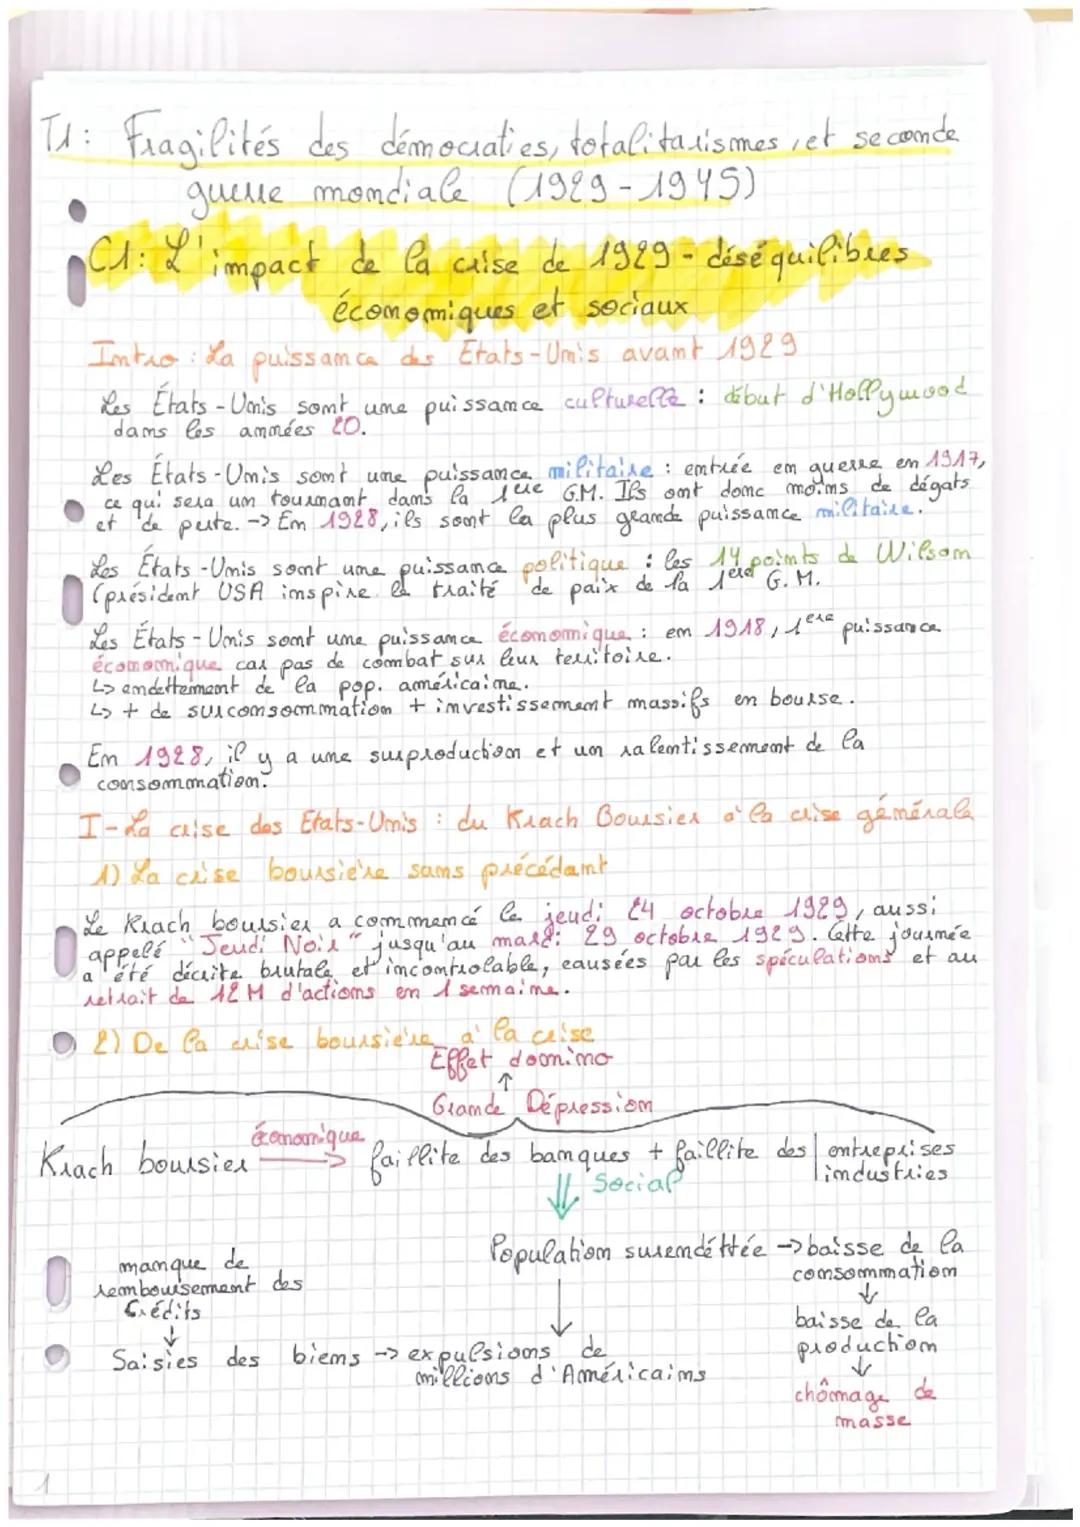 T1 : Fragilités des démocraties, totalitarismes, et seconde
guerre mondiale (1929-1945)
C1 : L'impact de la crise de 1929 - déséquilibres
économiques et sociaux
Intro : La puissance des Etats-Unis avant 1929
Les États-Unis sont une puissance culturelle : début d'Hollywood
dans les années 20.
Les États-Unis sont une puissance militaire : entrée en guerre en 1917,
ce qui sera un tournant dans la 1ère G.M. Ils ont donc moins de dégats
et de perte. -> En 1928, ils sont la plus grande puissance militaire.
Les États-Unis sont une puissance politique : les 14 points de Wilson
(président USA inspire le traité de paix de la 1ère G.M.
Les États-Unis sont une puissance économique : en 1918, 1ère puissance
économique car pas de combat sur leur territoire.
↳ endettement de la pop. américaine.
↳ + de surconsommation + investissement massifs en bourse.
En 1928, il y a une surproduction et un ralentissement de la
consommation.
I-La crise des Etats-Unis : du Krach Boursier à la crise générale
1) La crise boursière sans précédant
Le Krach boursier a commencé le jeudi 24 octobre 1929, aussi
appelé "Jeudi Noir" jusqu'au mardi 29 octobre 1929. Cette journée
a été décrite brutale et incontrolable, causées par les spéculations et au
retrait de 12 M d'actions en 1 semaine.
2) De la crise boursière à la crise
Effet domino
↑
Grande Dépression
économique
Krach boursier -> faillite des banques + faillite des | entreprises
industries
⇓ Social
Population surendéttée -> baisse de la
consommation
manque de
remboursement des
Crédits
↓
baisse de la
production
Saisies des biens -> expulsions de
millions d'Américains
↓
chômage de
masse
1